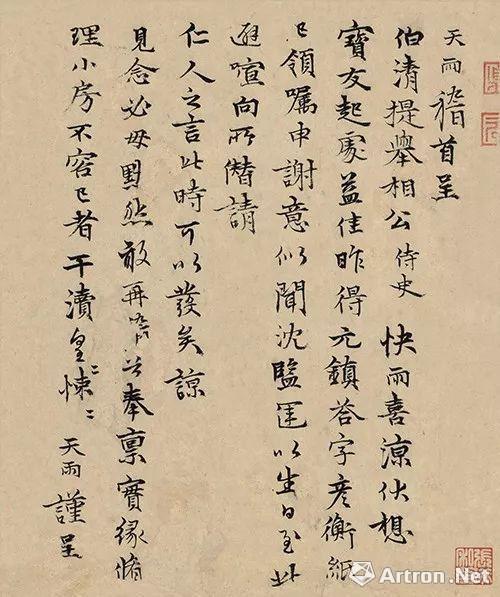 天雨稽首呈
伯清提舉相公侍史快雨喜涼伏想
寶友起處益佳昨得元鎮荅字彥衡紙
已領囑申謝意似聞沈監運以生日至此
避喧向所僭請
仁人之言此時可以發矣諒
見念必毋默然敢再奉稟實緣脩
理小房不容已者干瀆皇〻悚〻天雨謹呈
Artron.Net